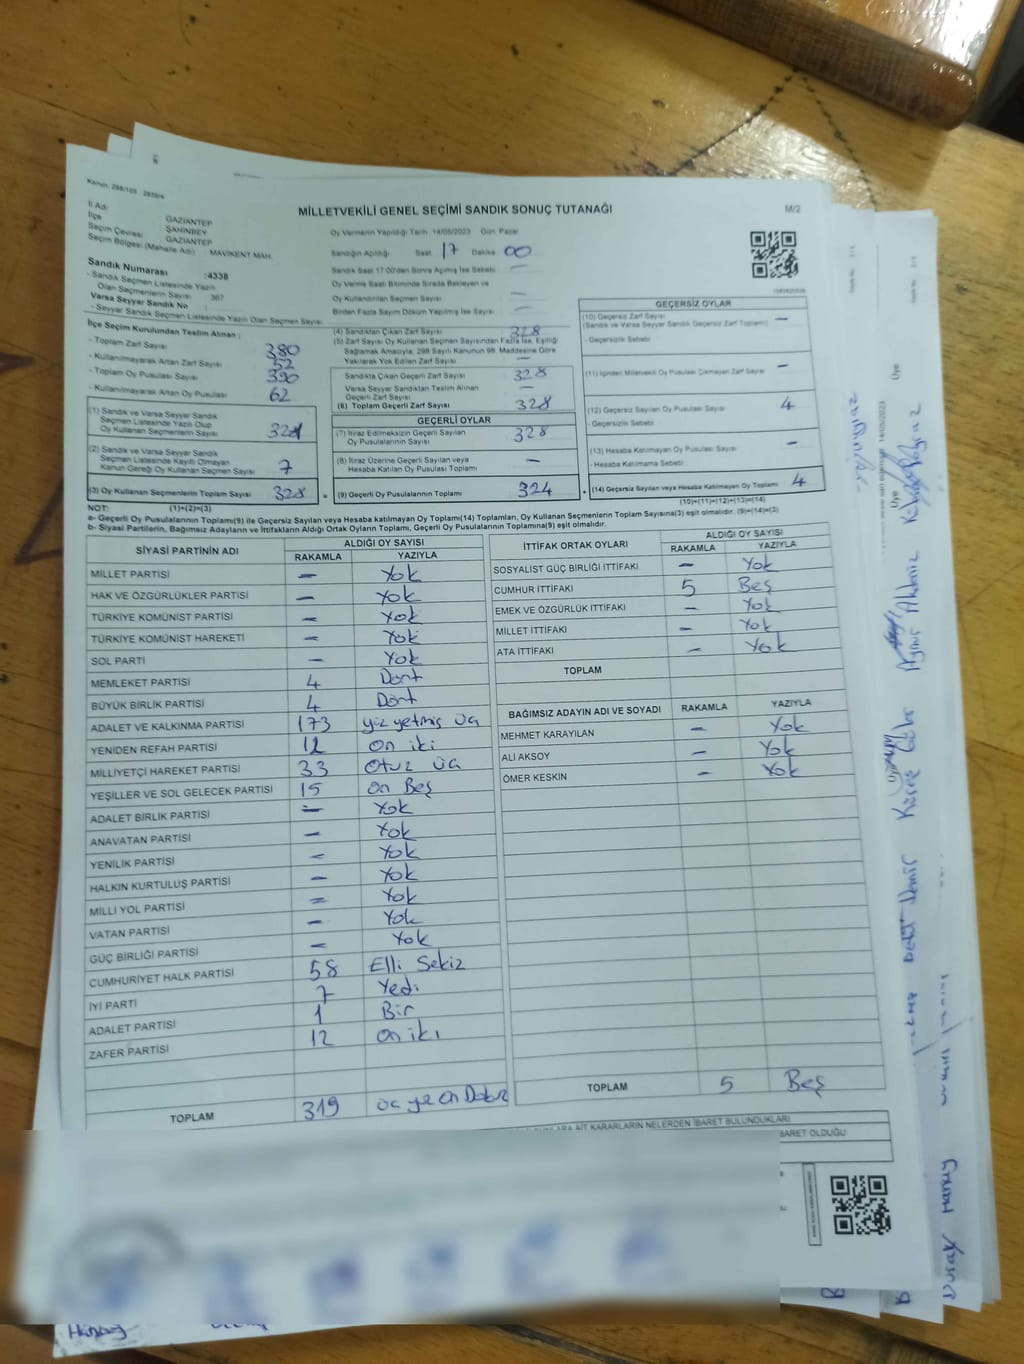 Kanun: 298/105 2839/4
MİLLETVEKİLİ GENEL SEÇİMİ SANDIK SONUÇ TUTANAĞI
M/2
İl Adı GAZİANTEP
İlçe ŞAHİNBEY
Seçim Çevresi GAZİANTEP
Seçim Bölgesi (Mahalle Adı) MAVİKENT MAH.
Sandık Numarası :4338
- Sandık Seçmen Listesinde Yazılı
Olan Seçmenlerin Sayısı : 367
Varsa Seyyar Sandık No :
- Seyyar Sandık Seçmen Listesinde Yazılı Olan Seçmen Sayısı
Oy Vermenin Yapıldığı Tarih :14/05/2023 Gün: Pazar
Sandığın Açıldığı Saat 17 Dakika 00
Sandık Saat 17:00'den Sonra Açılmış İse Sebebi —
Oy Verme Saati Bitiminde Sırada Bekleyen ve
Oy Kullandırılan Seçmen Sayısı —
Birden Fazla Sayım Döküm Yapılmış İse Sayısı —
İlçe Seçim Kurulundan Teslim Alınan :
- Toplam Zarf Sayısı 380
- Kullanılmayarak Artan Zarf Sayısı 52
- Toplam Oy Pusulası Sayısı 390
- Kullanılmayarak Artan Oy Pusulası 62
(1) Sandık ve Varsa Seyyar Sandık
Seçmen Listesinde Yazılı Olup
Oy Kullanan Seçmenlerin Sayısı 321
(2) Sandık ve Varsa Seyyar Sandık
Seçmen Listesinde Kayıtlı Olmayan
Kanun Gereği Oy Kullanan Seçmen Sayısı 7
(3) Oy Kullanan Seçmenlerin Toplam Sayısı 328
(4) Sandıktan Çıkan Zarf Sayısı 328
(5) Zarf Sayısı Oy Kullanan Seçmen Sayısından Fazla İse, Eşitliği
Sağlamak Amacıyla, 298 Sayılı Kanunun 98. Maddesine Göre
Yakılarak Yok Edilen Zarf Sayısı —
Sandıkta Çıkan Geçerli Zarf Sayısı 328
Varsa Seyyar Sandıktan Teslim Alınan
Geçerli Zarf Sayısı —
(6) Toplam Geçerli Zarf Sayısı 328
GEÇERLİ OYLAR
(7) İtiraz Edilmeksizin Geçerli Sayılan
Oy Pusulalarının Sayısı 328
(8) İtiraz Üzerine Geçerli Sayılan veya
Hesaba Katılan Oy Pusulası Toplamı —
= (9) Geçerli Oy Pusulalarının Toplamı 324
GEÇERSİZ OYLAR
(10) Geçersiz Zarf Sayısı —
(Sandık ve Varsa Seyyar Sandık Geçersiz Zarf Toplamı)
- Geçersizlik Sebebi
(11) İçinden Milletvekili Oy Pusulası Çıkmayan Zarf Sayısı —
(12) Geçersiz Sayılan Oy Pusulası Sayısı 4
- Geçersizlik Sebebi
(13) Hesaba Katılmayan Oy Pusulası Sayısı —
- Hesaba Katılmama Sebebi
+ (14) Geçersiz Sayılan veya Hesaba Katılmayan Oy Toplamı 4
(10)+(11)+(12)+(13)=(14)
NOT: (1)+(2)=(3)
a- Geçerli Oy Pusulalarının Toplamı(9) ile Geçersiz Sayılan veya Hesaba katılmayan Oy Toplamı(14) Toplamları, Oy Kullanan Seçmenlerin Toplam Sayısına(3) eşit olmalıdır. (9)+(14)=(3)
b- Siyasi Partilerin, Bağımsız Adayların ve İttifakların Aldığı Ortak Oyların Toplamı, Geçerli Oy Pusulalarının Toplamına(9) eşit olmalıdır.
SİYASİ PARTİNİN ADI ALDIĞI OY SAYISI
RAKAMLA YAZIYLA
MİLLET PARTİSİ — Yok
HAK VE ÖZGÜRLÜKLER PARTİSİ — Yok
TÜRKİYE KOMÜNİST PARTİSİ — Yok
TÜRKİYE KOMÜNİST HAREKETİ — Yok
SOL PARTİ — Yok
MEMLEKET PARTİSİ 4 Dört
BÜYÜK BİRLİK PARTİSİ 4 Dört
ADALET VE KALKINMA PARTİSİ 173 yüz yetmiş üç
YENİDEN REFAH PARTİSİ 12 on iki
MİLLİYETÇİ HAREKET PARTİSİ 33 Otuz üç
YEŞİLLER VE SOL GELECEK PARTİSİ 15 on Beş
ADALET BİRLİK PARTİSİ — Yok
ANAVATAN PARTİSİ — Yok
YENİLİK PARTİSİ — Yok
HALKIN KURTULUŞ PARTİSİ — Yok
MİLLİ YOL PARTİSİ — Yok
VATAN PARTİSİ — Yok
GÜÇ BİRLİĞİ PARTİSİ — Yok
CUMHURİYET HALK PARTİSİ 58 Elli Sekiz
İYİ PARTİ 7 Yedi
ADALET PARTİSİ 1 Bir
ZAFER PARTİSİ 12 on iki
TOPLAM 319
İTTİFAK ORTAK OYLARI ALDIĞI OY SAYISI
RAKAMLA YAZIYLA
SOSYALİST GÜÇ BİRLİĞİ İTTİFAKI — Yok
CUMHUR İTTİFAKI 5 Beş
EMEK VE ÖZGÜRLÜK İTTİFAKI — Yok
MİLLET İTTİFAKI — Yok
ATA İTTİFAKI — Yok
TOPLAM
BAĞIMSIZ ADAYIN ADI VE SOYADI RAKAMLA YAZIYLA
MEHMET KARAYILAN — Yok
ALİ AKSOY — Yok
ÖMER KESKİN — Yok
TOPLAM 5 Beş
AİT KARARLARIN NELERDEN İBARET BULUNDUKLARI
BARET OLDUĞU
Üye
Üye
14/05/2023